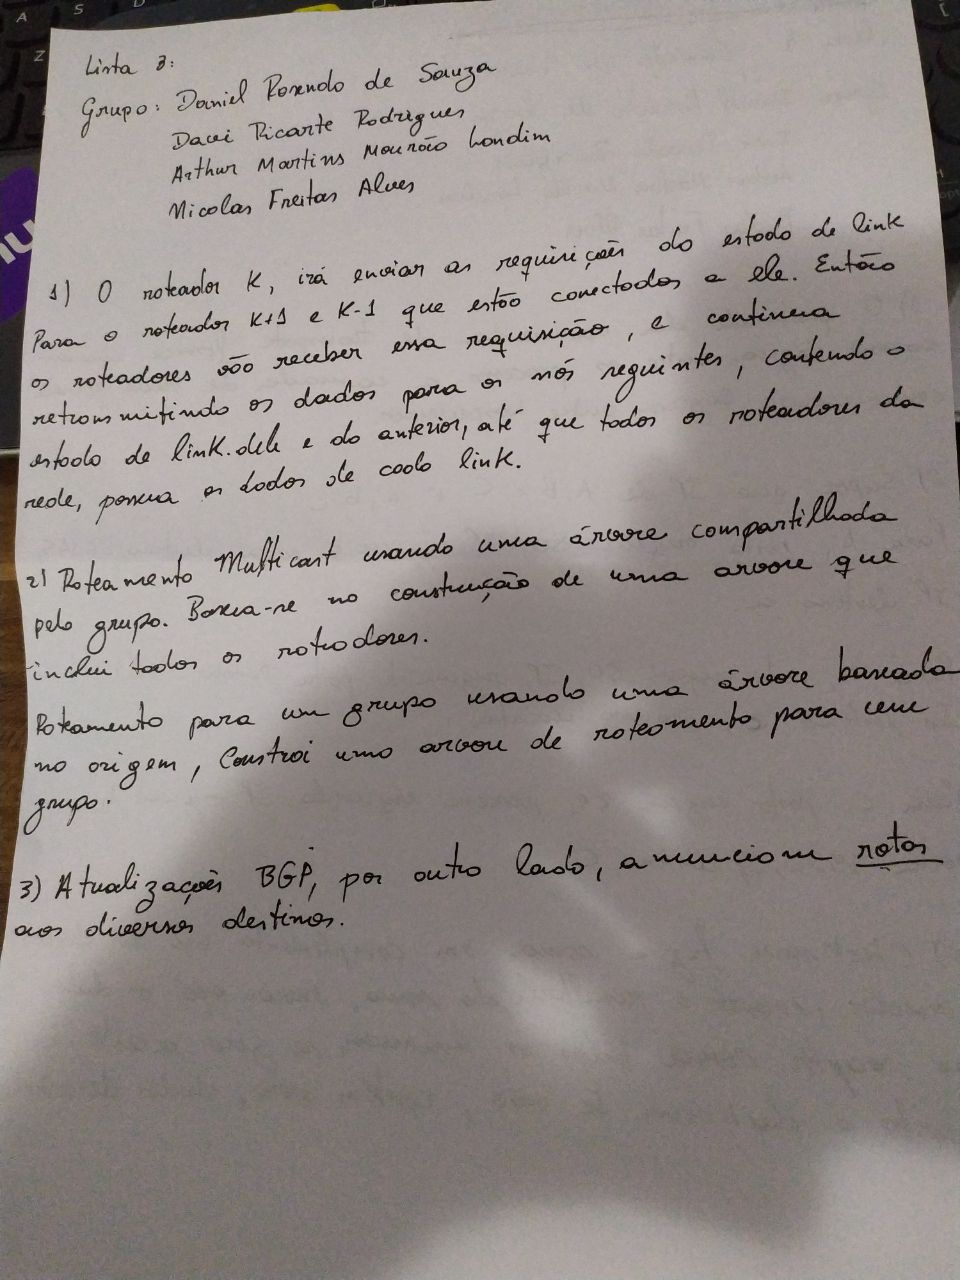 Lista 3:
Grupo: Daniel Rosendo de Souza
Davi Ricarte Rodrigues
Arthur Martins Mourão Londim
Nicolas Freitas Alves
1) O roteador K, irá enviar as requisições do estado de link
Para o roteador K+1 e K-1 que estão conectados a ele. Então
os roteadores vão receber essa requisição, e continua
retransmitindo os dados para os nós seguintes, contendo o
estado de link dele e do anterior, até que todos os roteadores da
rede, possua os dados de cada link.
2) Roteamento Multicast usando uma árvore compartilhada
pelo grupo. Baseia-se na construção de uma arvore que
inclui todos os roteadores.
Roteamento para um grupo usando uma árvore baseada
na origem, Constroi uma arvore de roteamento para cem
grupo.
3) Atualizações BGP, por outro lado, anunciam rotas
aos diversos destinos.
nu
A S D
Z